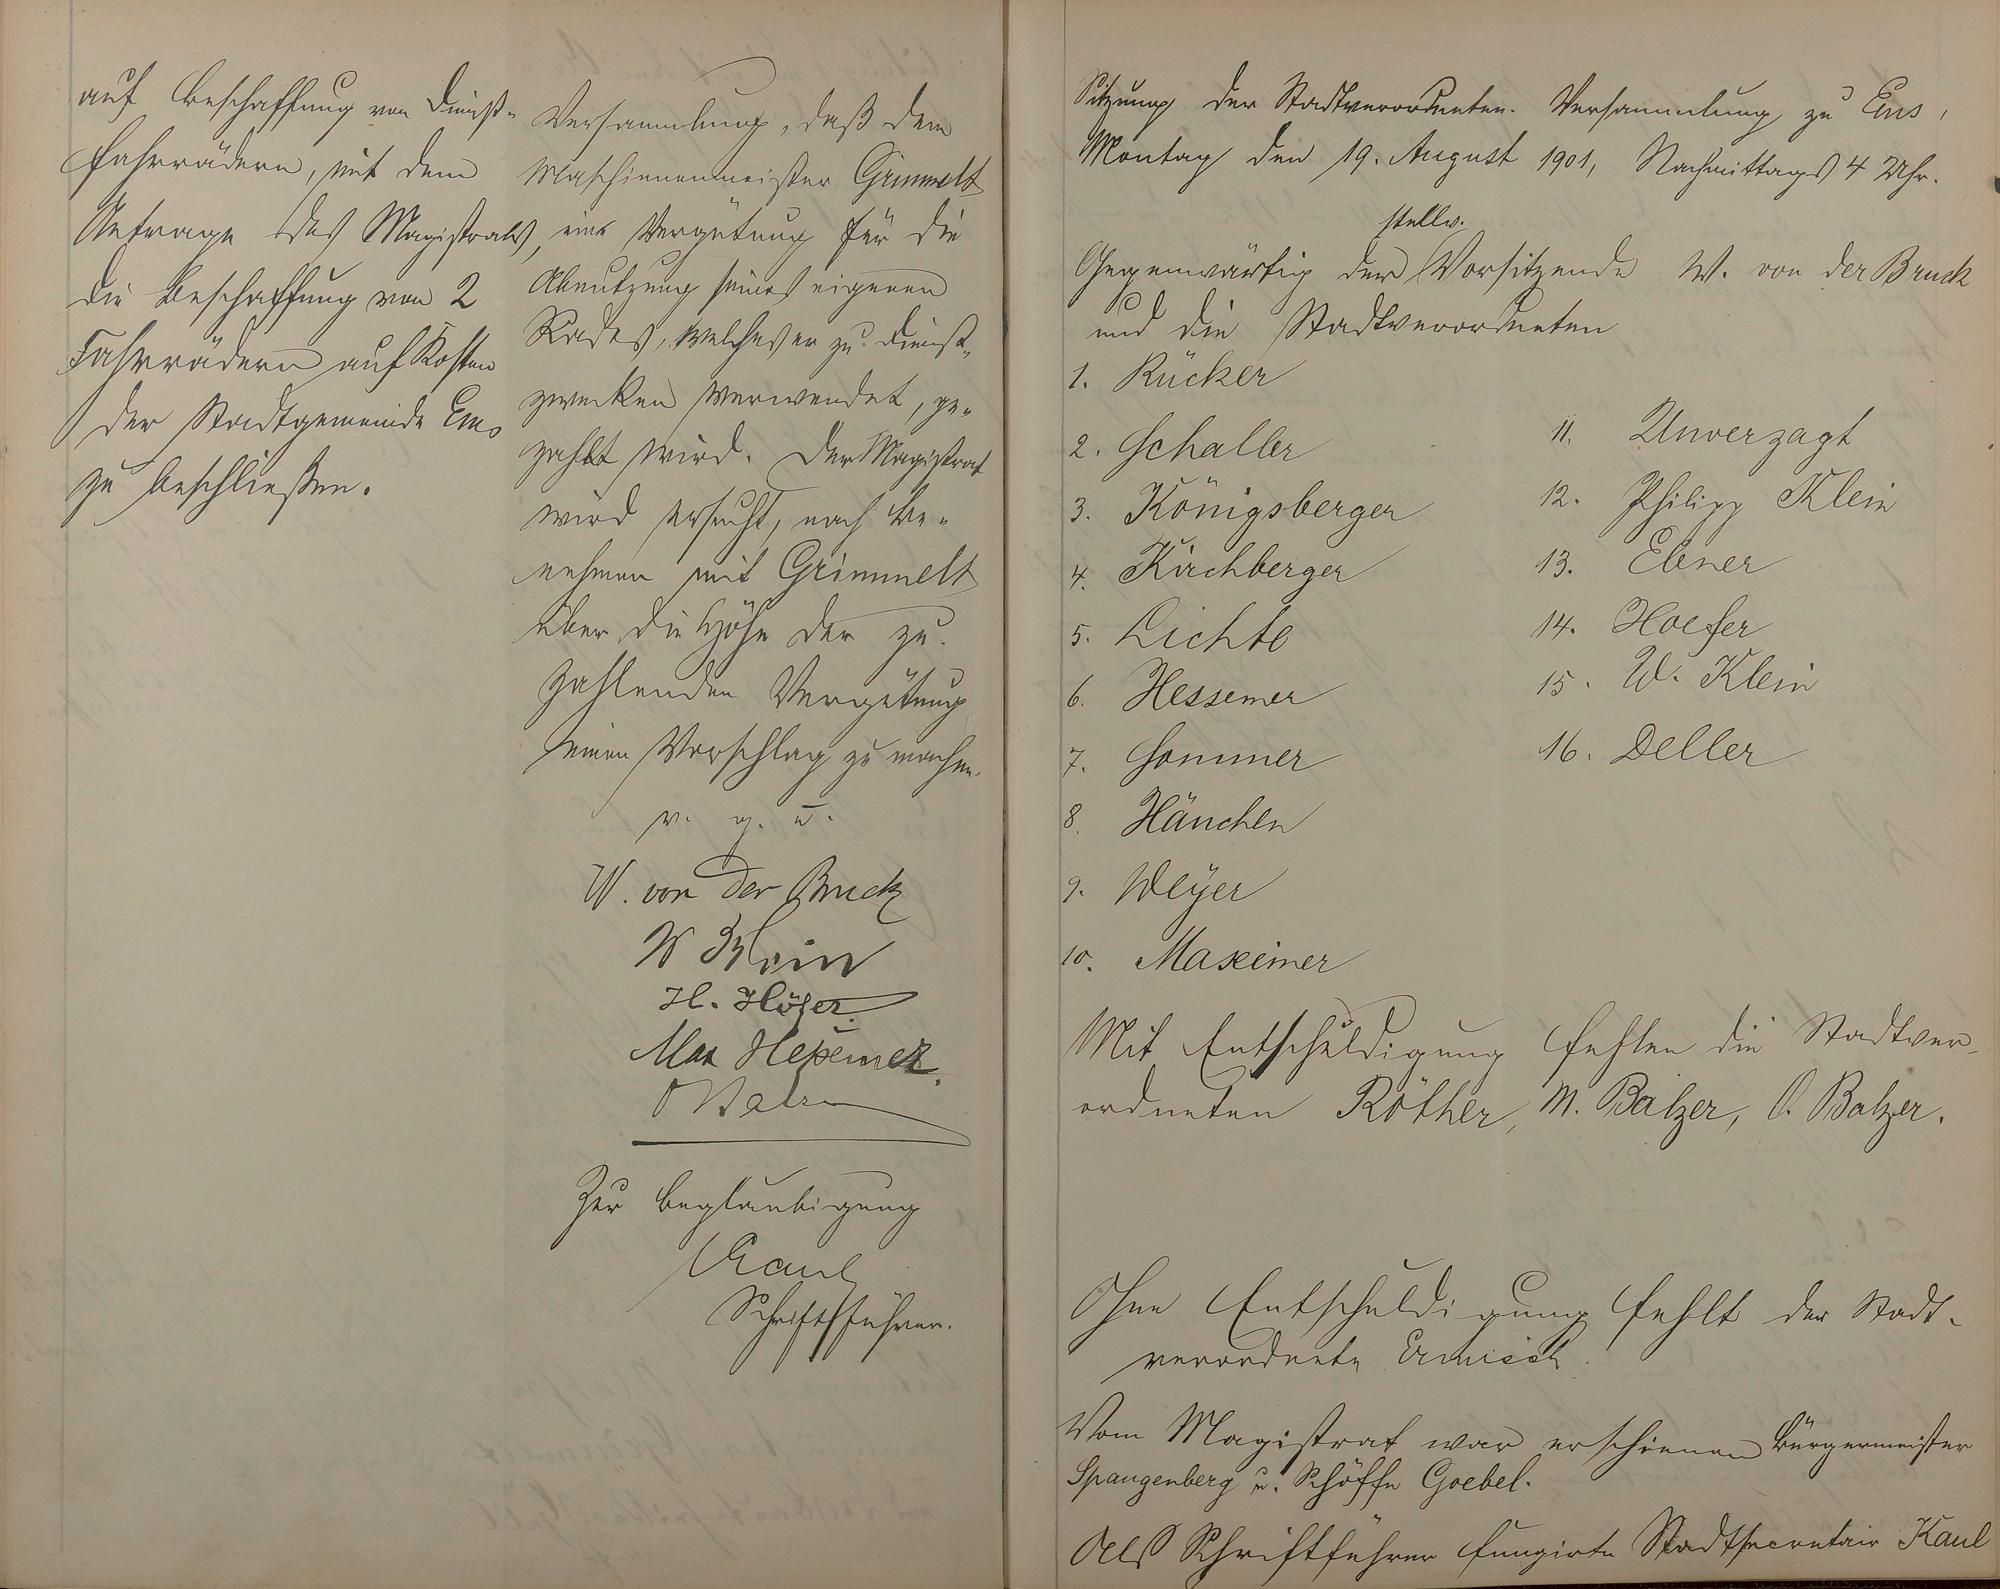 auf Beschaffung von Dienst-
fahrrädern, mit dem
Antrage des Magistrats,
die Beschaffung von 2
Fahrrädern auf Kosten
der Stadtgemeinde Ems
zu beschließen.
Versammlung, daß dem
Maschinenmeister Grimmelt
eine Vergütung für die
Abnutzung seines eigenen
Rades, welches er zu Dienst-
zwecken verwendet, ge-
zahlt wird. Der Magistrat
wird ersucht, nach Be-
nehmen mit Grimmelt
über die Höhe der zu
zahlenden Vergütung
einen Vorschlag zu machen.
v. g. u.
W. von der Bruck
W Klein
H. Höfer
Max Hessemer
O Balzer
Zur Beglaubigung
Kaul
Schriftführer.
Sitzung der Stadtverordneten-Versammlung zu Ems,
Montag den 19. August 1901, Nachmittags 4 Uhr.
stellv.
Gegenwärtig der Vorsitzende W. von der Bruck
und die Stadtverordneten
1. Rücker
2. Schaller
3. Königsberger
4. Kirchberger
5. Lichte
6. Hessemer
7. Sommer
8. Hänchen
9. Weyer
10. Maxeiner
11. Unverzagt
12. Philipp Klein
13. Ebner
14. Hoefer
15. W. Klein
16. Deller
Mit Entschuldigung fehlen die Stadtver-
ordneten Röther, M. Balzer, O. Balzer.
Ohne Entschuldigung fehlt der Stadt-
verordnete Ermisch.
Vom Magistrat war erschienen Bürgermeister
Spangenberg u. Schöffe Goebel.
Als Schriftführer fungirte Stadtsecretair Kaul